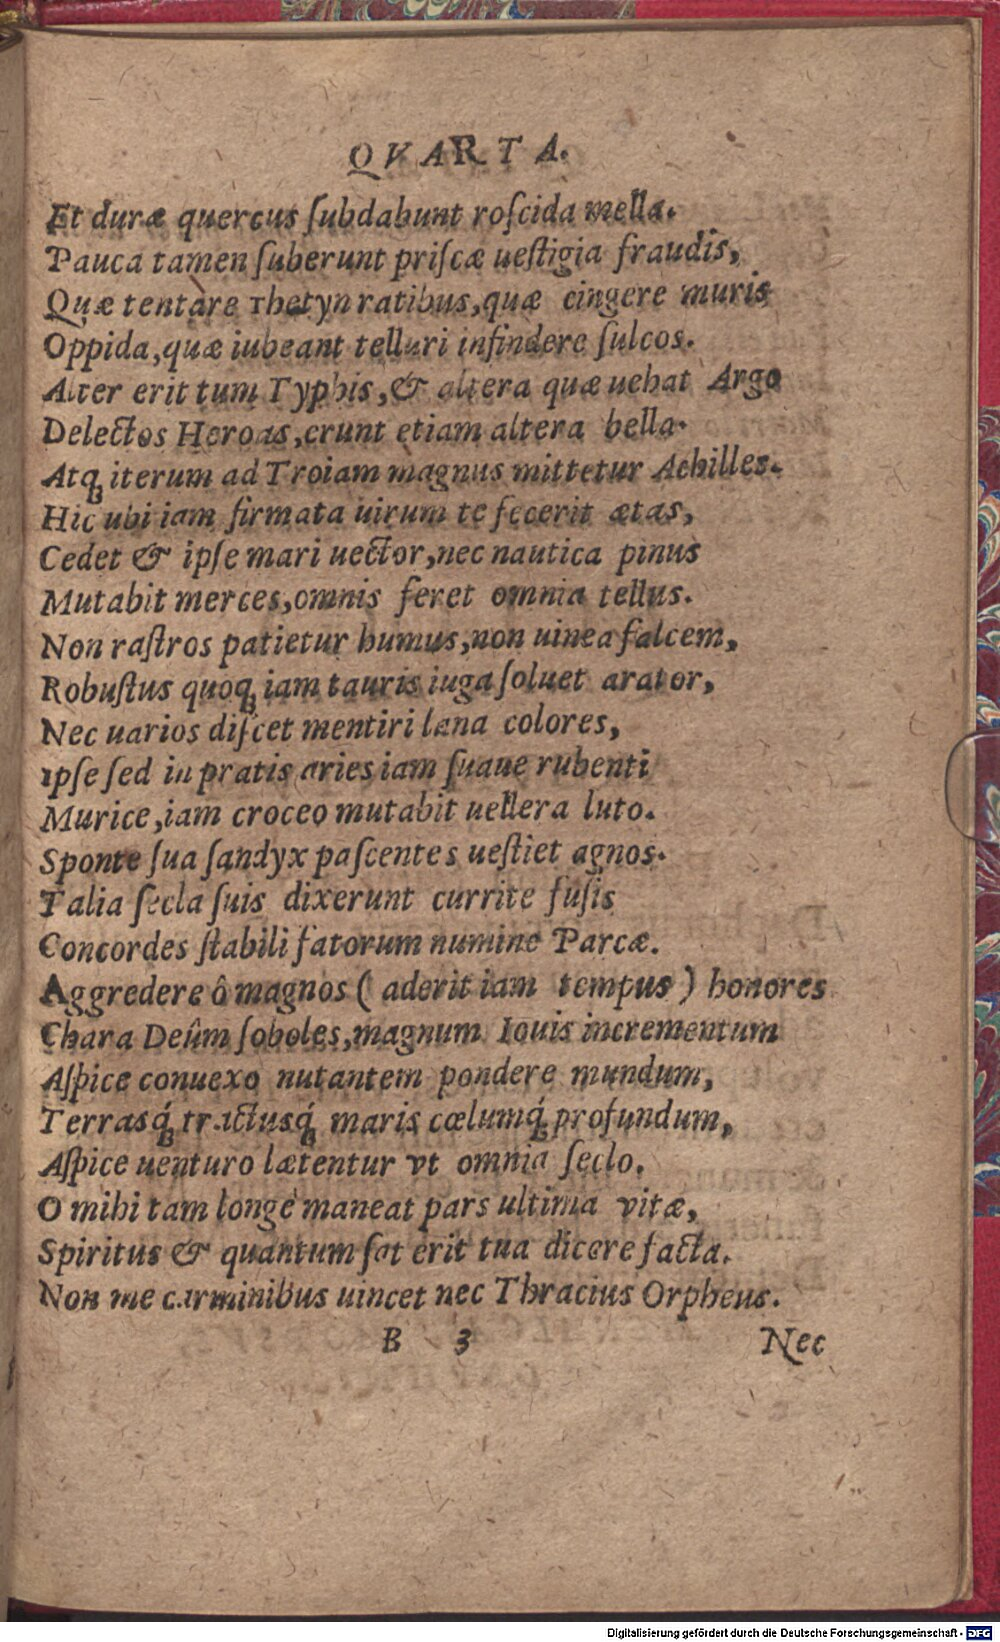 QVARTA.
Et duræ quercus ſubdabunt roſcida mella.
Pauca tamen ſuberunt priſcæ ueſtigia fraudis,
Quæ tentàre Thetyn ratibus, quæ cingere muris
Oppida, quæ iubeant telluri infindere ſulcos.
Alter erit tum Typhis, & altera quæ uehat Argo
Delectos Heroas, erunt etiam altera bella.
Atq; iterum ad Troiam magnus mittetur Achilles.
Hic ubi iam firmata uirum te fecerit ætas,
Cedet & ipſe mari uector, nec nautica pinus
Mutabit merces, omnis feret omnia tellus.
Non raſtros patietur humus, non uinea falcem,
Robuſtus quoq; iam tauris iuga ſoluet arator,
Nec uarios diſcet mentiri lana colores,
Ipſe ſed in pratis aries iam ſuaue rubenti
Murice, iam croceo mutabit uellera luto.
Sponte ſua ſandyx paſcentes ueſtiet agnos.
Talia ſecla ſuis dixerunt currite fuſis
Concordes ſtabili fatorum numine Parcæ.
Aggredere ô magnos ( aderit iam tempus ) honores
Chara Deûm ſoboles, magnum Iouis incrementum
Aſpice conuexo nutantem pondere mundum,
Terrasq́; tractusq́; maris cœlumq́; profundum,
Aſpice uenturo lætentur vt omnia ſeclo.
O mihi tam longè maneat pars ultima vitæ,
Spiritus & quantum ſat erit tua dicere facta.
Non me carminibus uincet nec Thracius Orpheus.
B 3 Nec
Digitalisierung gefördert durch die Deutsche Forschungsgemeinschaft - DFG